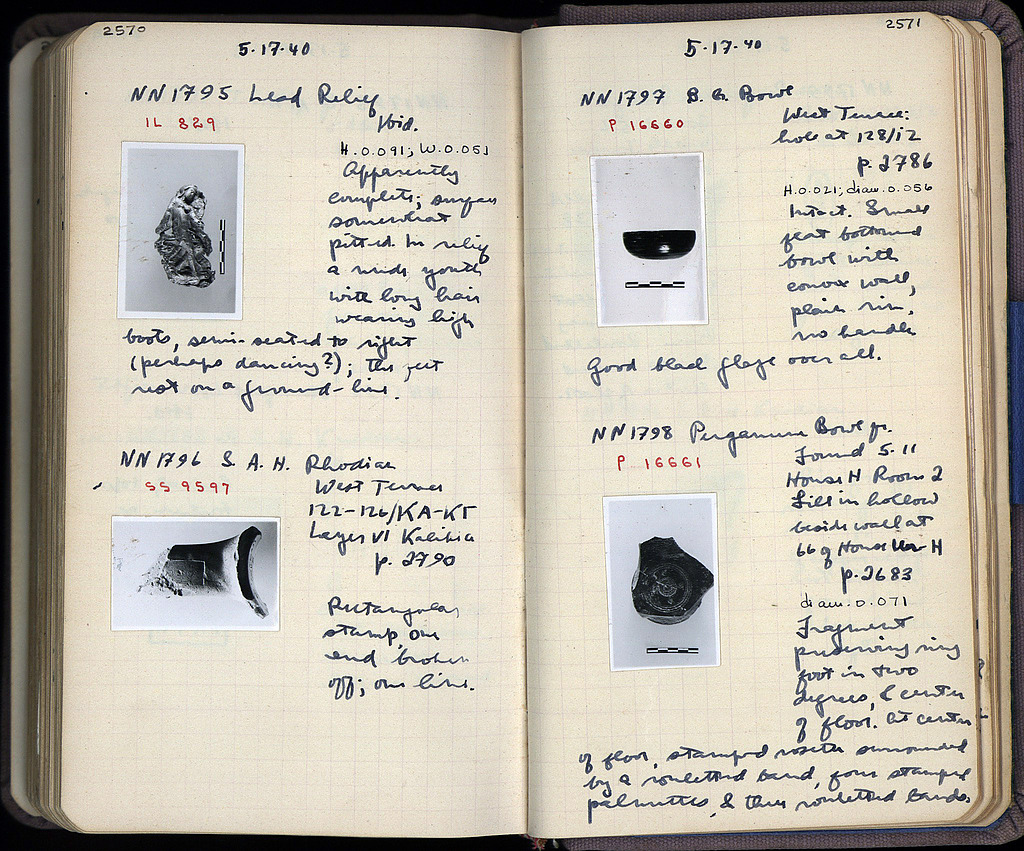 2570
5-17-40
NN 1795 Lead Relief
IL 829
Ibid.
H. 0.091; W. 0.051
Apparently
complete; surface
somewhat
pitted. In relief
a nude youth
with long hair
wearing high
boots, semi-seated to right
(perhaps dancing?); the feet
rest on a ground-line.
NN 1796 S. A. H. Rhodian
SS 9597
West Terrace
122-126/ΚΑ-ΚΓ
Layer VI
p. 2790
Rectangular
stamp, one
end broken
off; one line.
2571
5-17-40
NN 1797 B. G. Bowl
P 16660
West Terrace:
hole at 128/ΙΖ
p. 2786
H. 0.021; diam. 0.056
Intact. Small
flat bottomed
bowl with
convex wall,
plain rim,
no handle
Good black glaze over all.
NN 1798 Pergamene Bowl fr.
P 16661
Found 5-11
House H Room 2
Fill in hollow
beside wall at
66 of House H
p. 2683
diam. 0.071
Fragment
preserving ring
foot in two
degrees, & center
of floor. At center
of floor, stamped rosette surrounded
by a rouletted band, four stamped
palmettes, & three rouletted bands